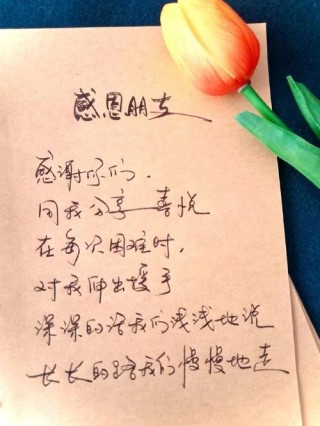 感恩朋友
感谢你们.
同我分享喜悦
在每次困难时,
对我伸出援手
深深的话我们浅浅地说
长长的路我们慢慢地走